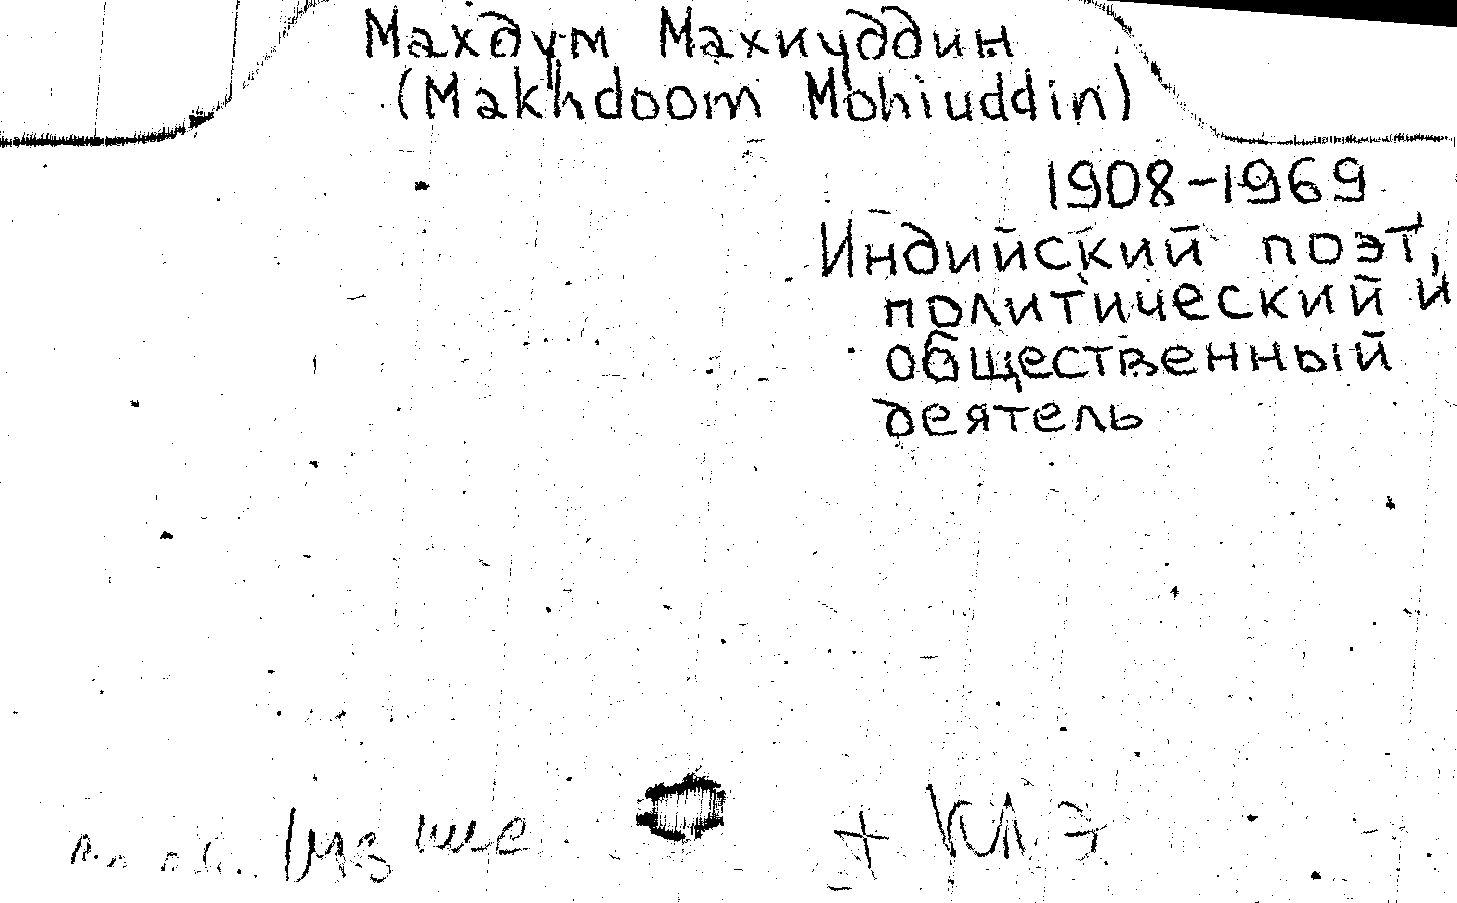 Махдум Махиуддин
(Makhdoom Mohiuddin)
1908-1969
Индийский поэт,
политический и
общественный
деятель
+ КЛЭ